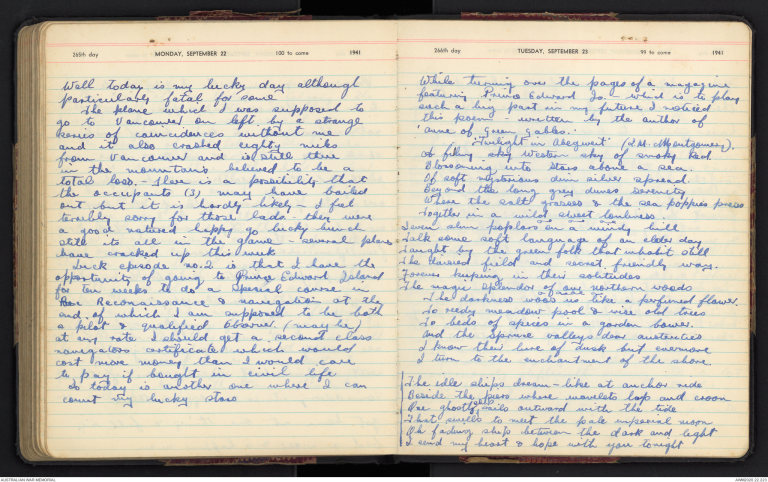 265th day MONDAY, SEPTEMBER 22 100 to come 1941
Well today is my lucky day although
particularly fatal for some
The plane which I was supposed to
go to Vancouver on left by a strange
series of coincidences without me
and it also crashed eighty miles
from Vancouver and is still there
in the mountains believed to be a
total loss. There is a possibility that
the occupants (3) may have bailed
out but it is hardly likely - I feel
terribly sorry for those lads they were
a good natured happy go lucky bunch
still its all in the game - several planes
have cracked up this week
Luck episode no. 2 is that I have the
opportunity of going to Prince Edward Island
for ten weeks to do a special course in
Reconaissance & navigation at the
end of which I am supposed to be both
a pilot & qualified Observer. (maybe)
at any rate I should get a second class
navigators certificate which would
cost more money than I would care
to pay if bought in civil life
So today is another one where I can
count my lucky stars
266th day TUESDAY, SEPTEMBER 23 99 to come 1941
While turning over the pages of a magazine
featuring Prince Edward Is. which is to play
such a big part in my future I noticed
this poem - written by the author of
'Anne of Green Gables.'
'Twilight in Abegweit' (L.M. Montgomery).
A filmy western sky of smoky red
Blossoming into stars above a sea
Of soft mysterious dim silver spread
Beyond the long grey dunes serenity
Where the salt grasses & the sea poppies press
Together in a wild sweet loneliness.
Seven slim poplars on a windy hill
Talk some soft language of an elder day
Taught by the green folk that inhabit still
The daisied field and secret friendly ways.
Forever keeping in their solitudes
The magic splendor of our northern woods
The darkness woos us like a perfumed flower
To reedy meadow pool & wise old trees
To beds of spices in a garden bower
And the spruce valleys dear austerities
I know their lure of dusk but evermore
I turn to the enchantment of the shore
The idle ships dream-like at anchor ride
Beside the piers where wavelets lap and croon
One ghostly sails outward with the tide
That swells to meet the pale imperial moon
Oh fading ship between the dark and light
I send my heart & hope with you tonight
AUSTRALIAN WAR MEMORIAL